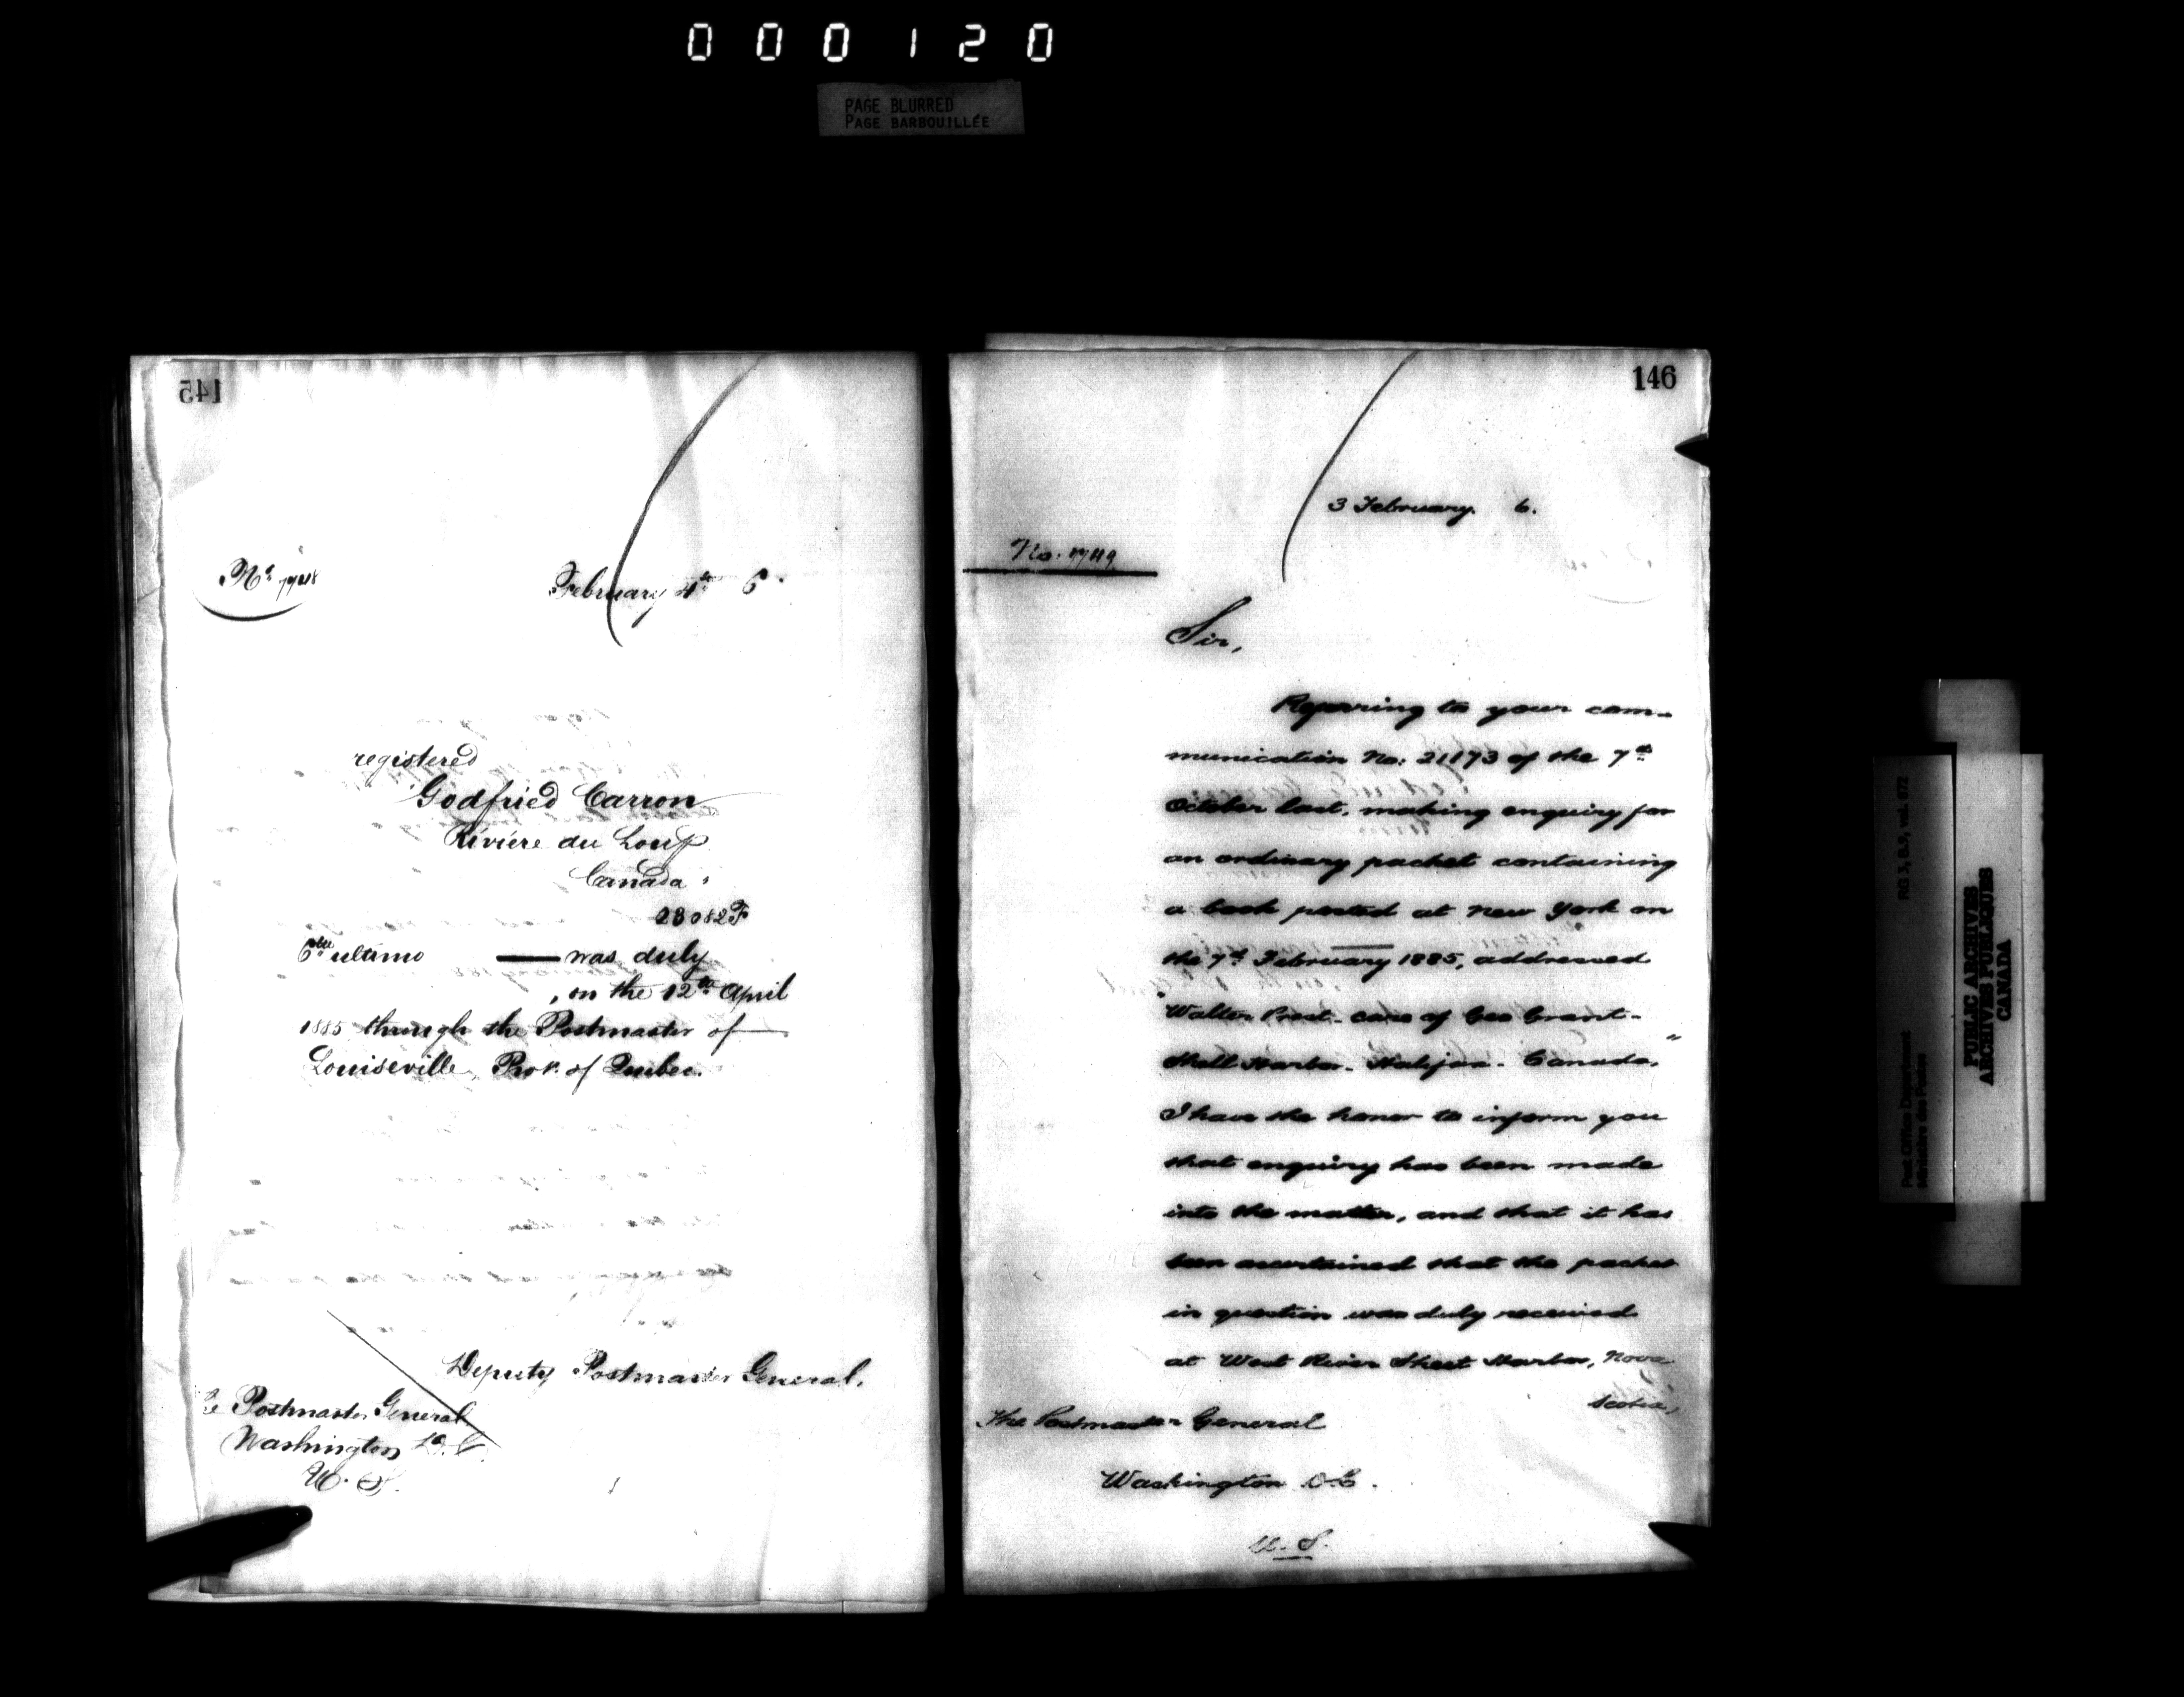 000120
PAGE BLURRED
PAGE BARBOUILLÉE
145
No 7748
February 4th 6
registered
Godfried Carron
Riviére du Loup
Canada
23082 F
6th ultimo — was duly
, on the 12th April
1885 through the Postmaster of
Louiseville, Prov. of Quebec.
Deputy Postmaster General.
Postmaster General
Washington D.C.
U.S.
146
3 February. 6.
No. 7749
Sir,
Referring to your com-
munication No: 21173 of the 7th
October last, making enquiry for
an ordinary packet containing
a book posted at New York on
the 7th February 1885, addressed
"Walter Prest. care of Geo Grant -
Shell Harbor. Halifax. Canada."
I have the honor to inform you
that enquiry has been made
into the matter, and that it has
been ascertained that the packet
in question was duly received
at West River Sheet Harbor, Nova
Scotia,
The Postmaster General
Washington D.C.
U.S.
Post Office Department RG 3, B.9, vol. 872
Ministère des Postes
PUBLIC ARCHIVES
ARCHIVES PUBLIQUES
CANADA